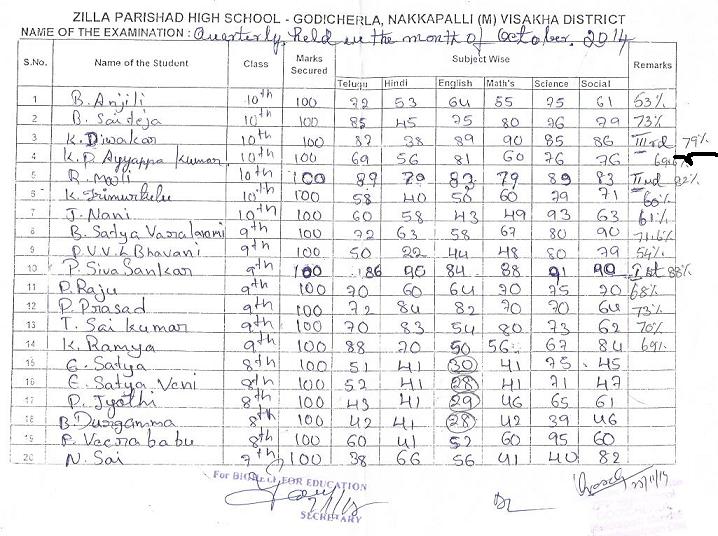 ZILLA PARISHAD HIGH SCHOOL - GODICHERLA, NAKKAPALLI (M) VISAKHA DISTRICT
NAME OF THE EXAMINATION : Quarterly, held in the month of October. 2014
S.No. Name of the Student Class Marks Secured Subject Wise Remarks
Telugu Hindi English Math's Science Social
1 B. Anjili 10th 100 72 53 64 55 75 61 53%
2 B. Saiteja 10th 100 85 45 75 80 76 79 73%
3 K. Diwakar 10th 100 87 38 89 90 85 86 IIIrd 79%
4 K. P. Ayyappa kumar 10th 100 69 56 81 60 76 76
5 R. Mali 10th 100 89 79 82 79 89 83 IInd 82%
6 K. Trimurthulu 10th 100 58 40 50 60 79 71 60%
7 J. Nani 10th 100 60 58 43 49 93 63 61%
8 B. Satya Varalaxmi 9th 100 72 63 58 67 80 90 71.6%
9 P.V.V.L Bhavani 9th 100 50 22 44 48 80 79 54%
10 P. Siva Sankar 9th 100 86 90 84 88 91 90 Ist 88%
11 P. Raju 9th 100 70 60 64 70 75 70 68%
12 P. Prasad 9th 100 72 84 82 70 70 64 73%
13 T. Sai kumar 9th 100 70 83 54 80 73 62 70%
14 K. Ramya 9th 100 88 70 50 56 67 84 69%
15 G. Satya 8th 100 51 41 30 41 75 45
16 E. Satya Veni 8th 100 52 41 28 41 71 47
17 P. Jyothi 8th 100 43 41 29 46 65 61
18 B. Durgamma 8th 100 42 41 28 42 39 46
19 P. Veerababu 8th 100 60 41 52 60 95 60
20 N. Sai 9th 100 38 66 56 41 40 82
For FOR EDUCATION
SECRETARY